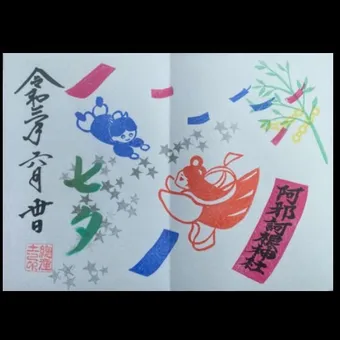 阿邪訶根神社
七夕
令和三年六月廿日